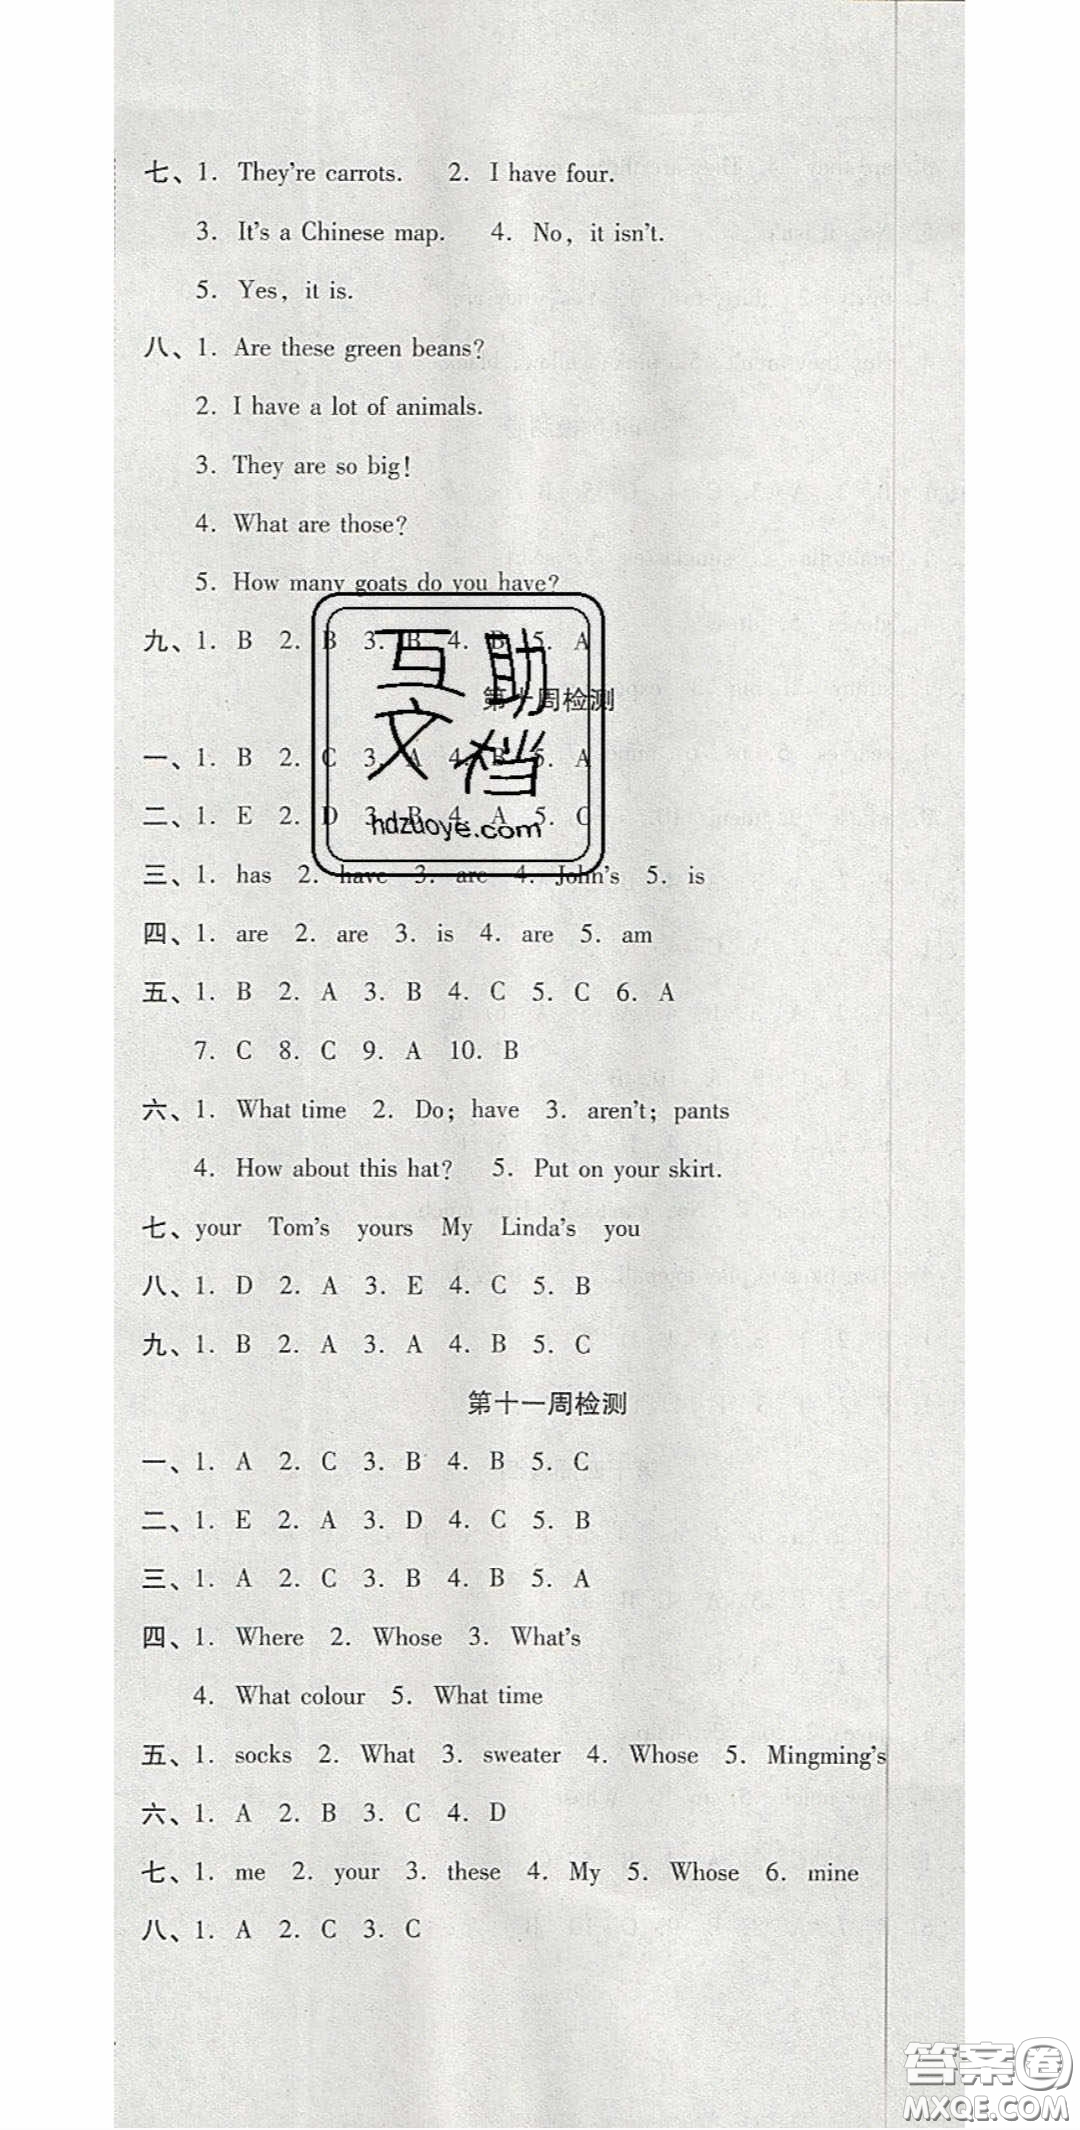 七、1. They're carrots. 2. I have four.
3. It's a Chinese map. 4. No, it isn't.
5. Yes, it is.
八、1. Are these green beans?
2. I have a lot of animals.
3. They are so big!
4. What are those?
5. How many goats do you have?
九、1. B 2. B 3. B 4. B 5. A
第十周检测
一、1. B 2. C 3. A 4. B 5. A
二、1. E 2. D 3. B 4. A 5. C
三、1. has 2. have 3. are 4. John's 5. is
四、1. are 2. are 3. is 4. are 5. am
五、1. B 2. A 3. B 4. C 5. C 6. A
7. C 8. C 9. A 10. B
六、1. What time 2. Do; have 3. aren't; pants
4. How about this hat? 5. Put on your skirt.
七、your Tom's yours My Linda's you
八、1. D 2. A 3. E 4. C 5. B
九、1. B 2. A 3. A 4. B 5. C
第十一周检测
一、1. A 2. C 3. B 4. B 5. C
二、1. E 2. A 3. D 4. C 5. B
三、1. A 2. C 3. B 4. B 5. A
四、1. Where 2. Whose 3. What's
4. What colour 5. What time
五、1. socks 2. What 3. sweater 4. Whose 5. Mingming's
六、1. A 2. B 3. C 4. D
七、1. me 2. your 3. these 4. My 5. Whose 6. mine
八、1. A 2. C 3. C
互助
文档
hdzuoye.com
答案圈
MXQE.COM